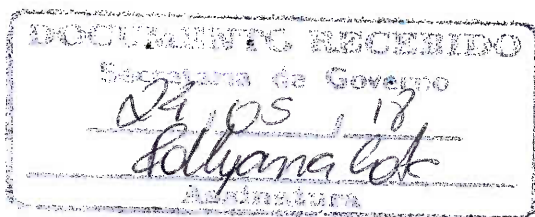 DOCUMENTO RECEBIDO
Secretaria de Governo
24, 05, 18
Pollyana
Assinatura